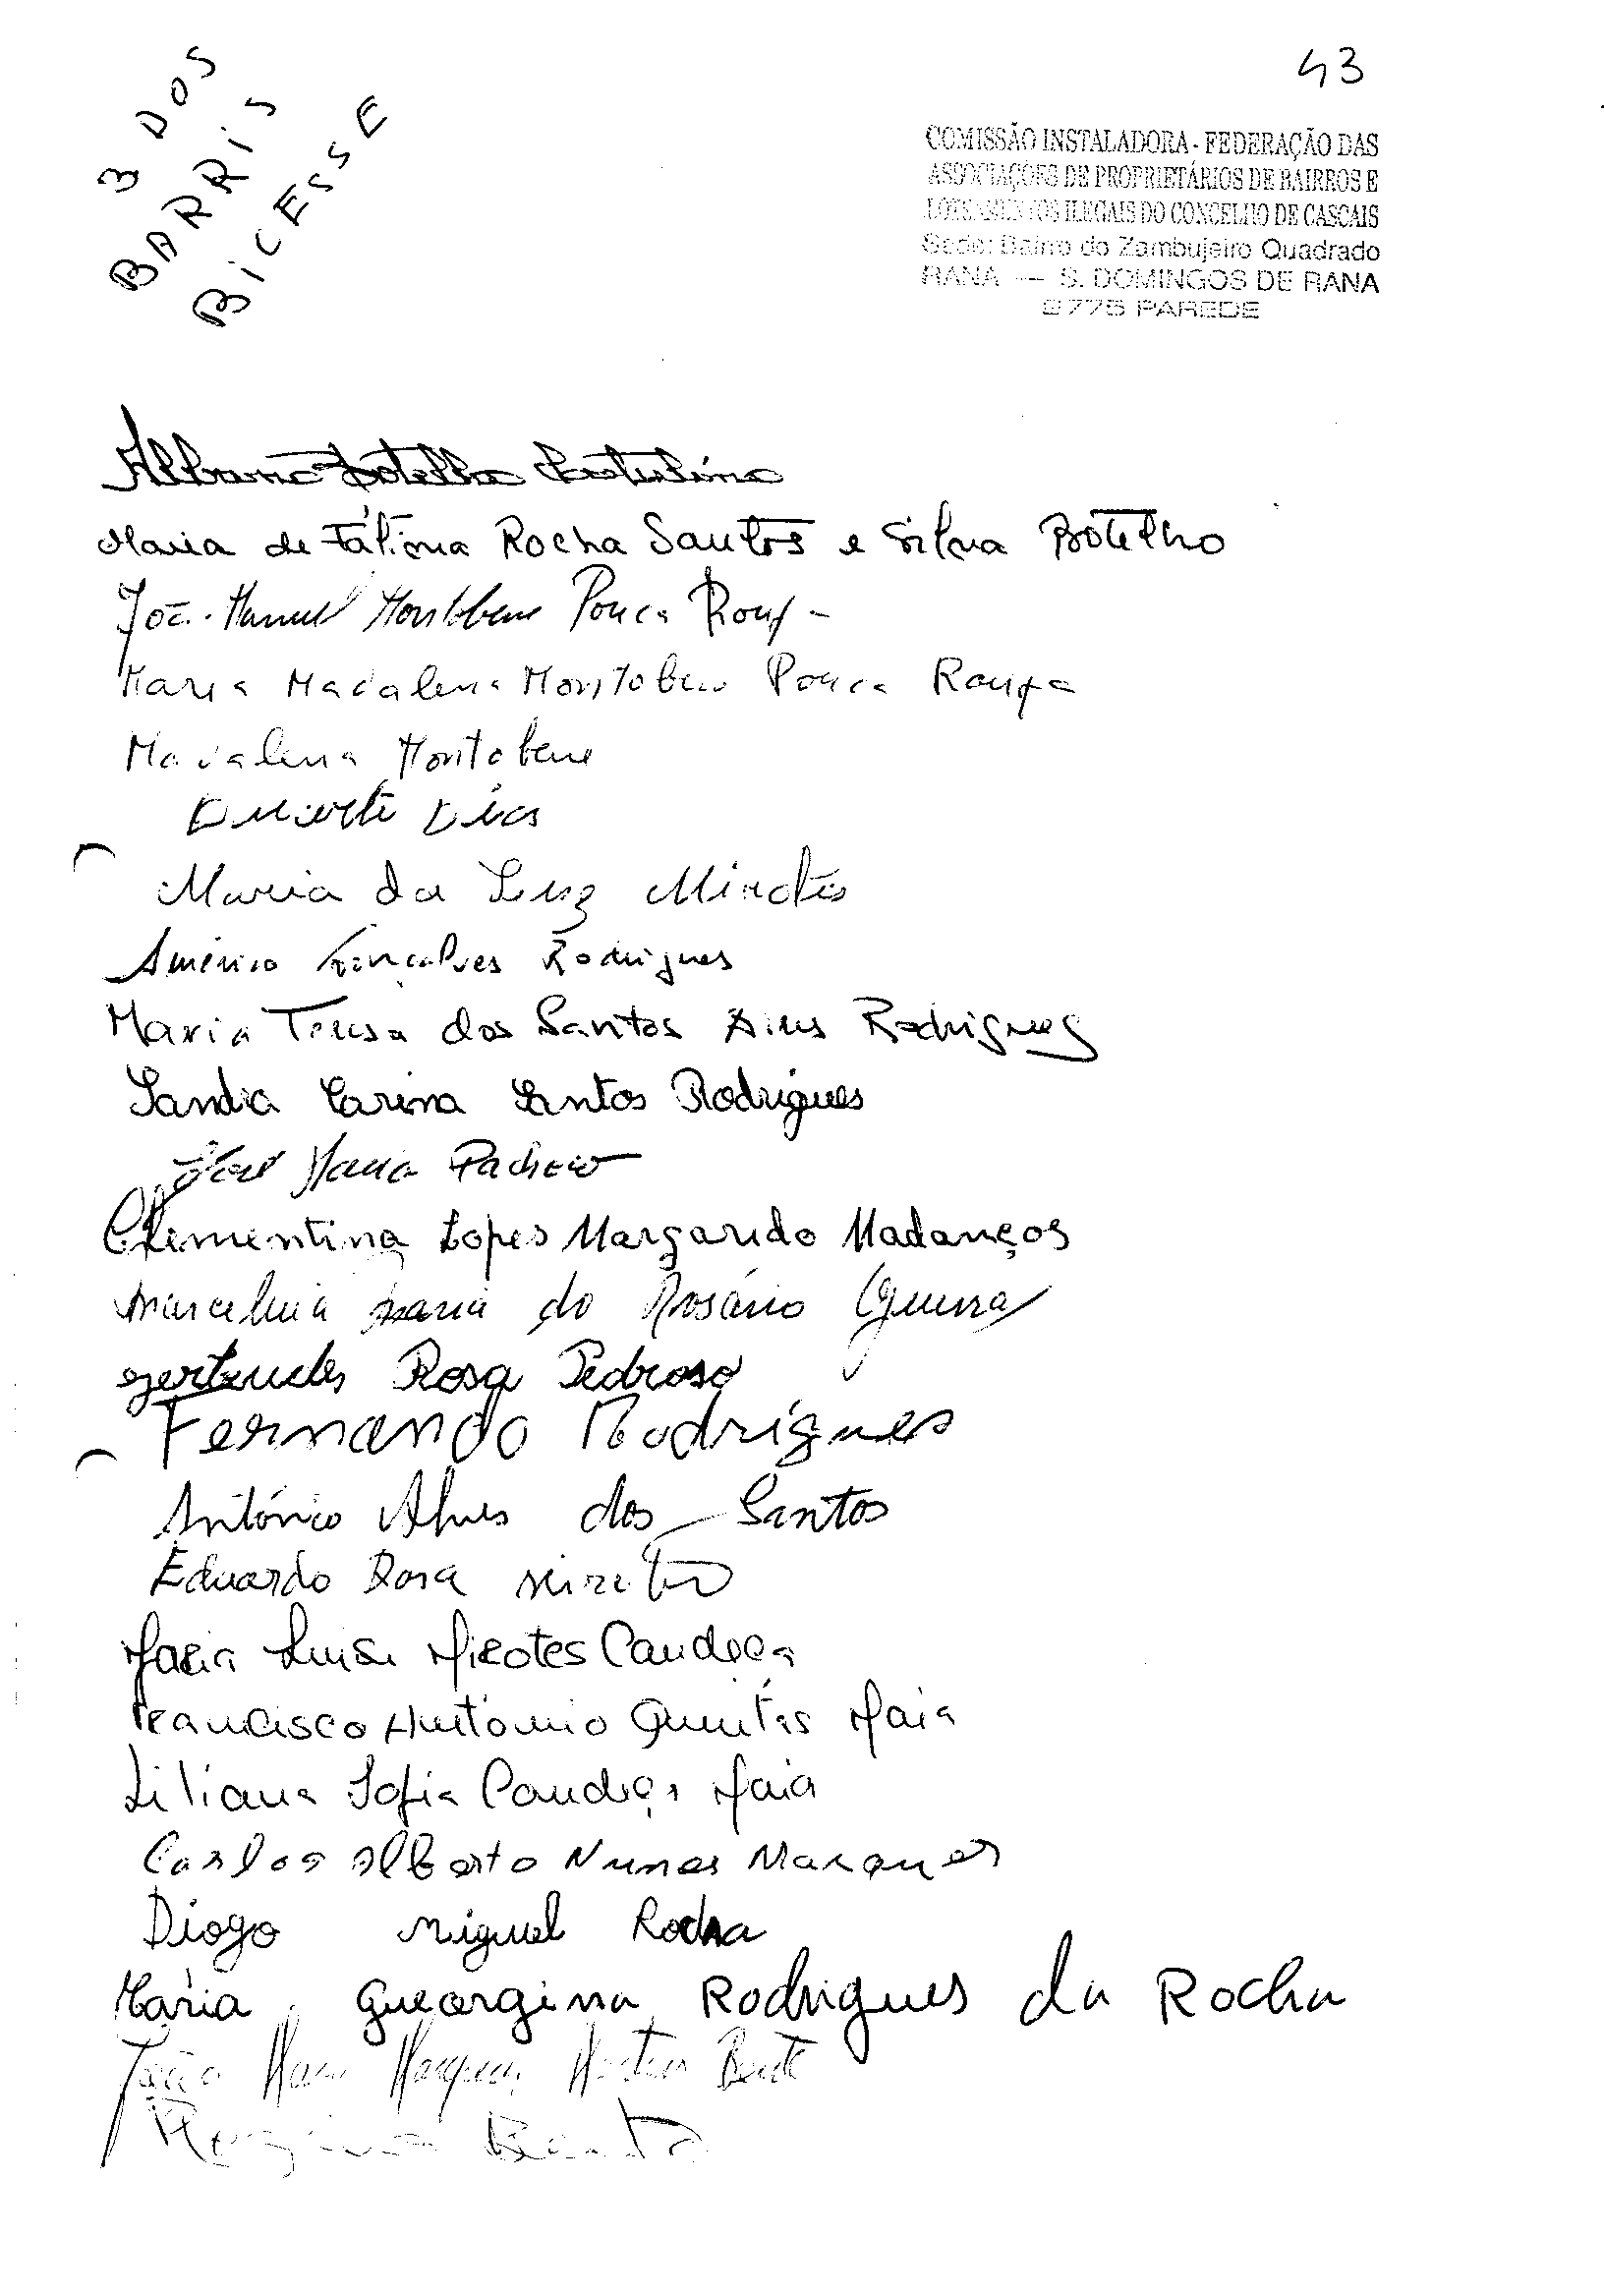 43
3 DOS
BARRIS
BICESSE
COMISSÃO INSTALADORA - FEDERAÇÃO DAS
ASSOCIAÇÕES DE PROPRIETÁRIOS DE BAIRROS E
LOTEAMENTOS ILEGAIS DO CONCELHO DE CASCAIS
Sede: Bairro do Zambujeiro Quadrado
RANA — S. DOMINGOS DE RANA
2775 PAREDE
Albano Botelho
Maria de Fátima Rocha Santos e Silva Botelho
João Manuel Montobene Pouca Roupa
Maria Madalena Montobene Pouca Roupa
Madalena Montobene
Duarte Dias
Maria da Luz
Américo Gonçalves Rodrigues
Maria Teresa dos Santos Aires Rodrigues
Sandra Carina Santos Rodrigues
José Maria Pacheco
Clementina Lopes Margarido Madanços
Marcelina Maria do Rosário Guerra
Gertrudes Rosa Pedroso
Fernando Rodrigues
António Alves dos Santos
Eduardo Rosa
Maria Luisa Mirotes Candeça
Francisco António Quintas Maia
Liliana Sofia Candeça Maia
Carlos Alberto Nunes Marques
Diogo Miguel Rocha
Maria Gueorgina Rodrigues da Rocha
João Marques Martins Bento
Regina Bento